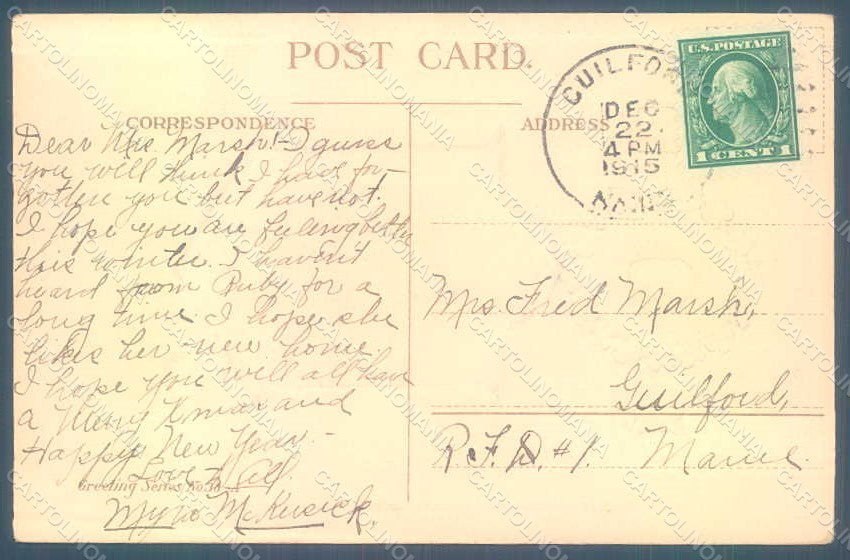 POST CARD.
CORRESPONDENCE
Dear Mrs. Marsh:- I guess
you will think I have for-
gotten you but have not.
I hope you are feeling better
this winter. I haven't
heard from Ruby for a
long time I hope she
likes her new home.
I hope you will all have
a Merry Xmas and
Happy New Year.-
Love to All.
Greeting Series No.
McKusick.
ADDRESS
GUILFOR
DEC
22
4 PM
1915
U.S. POSTAGE
1 CENT 1
Mrs. Fred Marsh,
Guilford,
R.F.D. #1. Maine
CARTOLINOMANIA